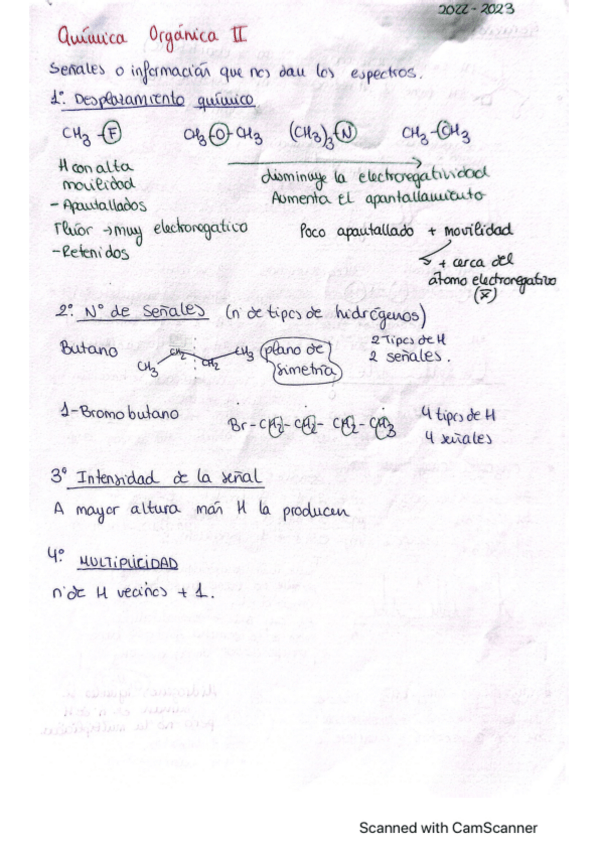 2022-2023
Química Orgánica II
Señales o información que nos dan los espectros.
1º. Desplazamiento químico
CH3-F CH3-O-CH3 (CH3)3-N CH3-CH3
H con alta
movilidad
- Apantallados
Fluor → muy electronegativo
- Retenidos
disminuye la electronegatividad
Aumenta El apantallamiento
Poco apantallado + movilidad
+ cerca del
átomo electronegativo
(x̄)
2º. Nº de Señales (n de tipos de hidrógenos)
Butano
CH3 CH2 CH2 CH3
plano de
simetría
2 Tipos de H
2 señales.
1-Bromobutano
Br-CH2-CH2-CH2-CH3
4 tipos de H
4 señales
3º Intensidad de la señal
A mayor altura más H la producen
4º MULTIPLICIDAD
n de H vecinos + 1.
Scanned with CamScanner